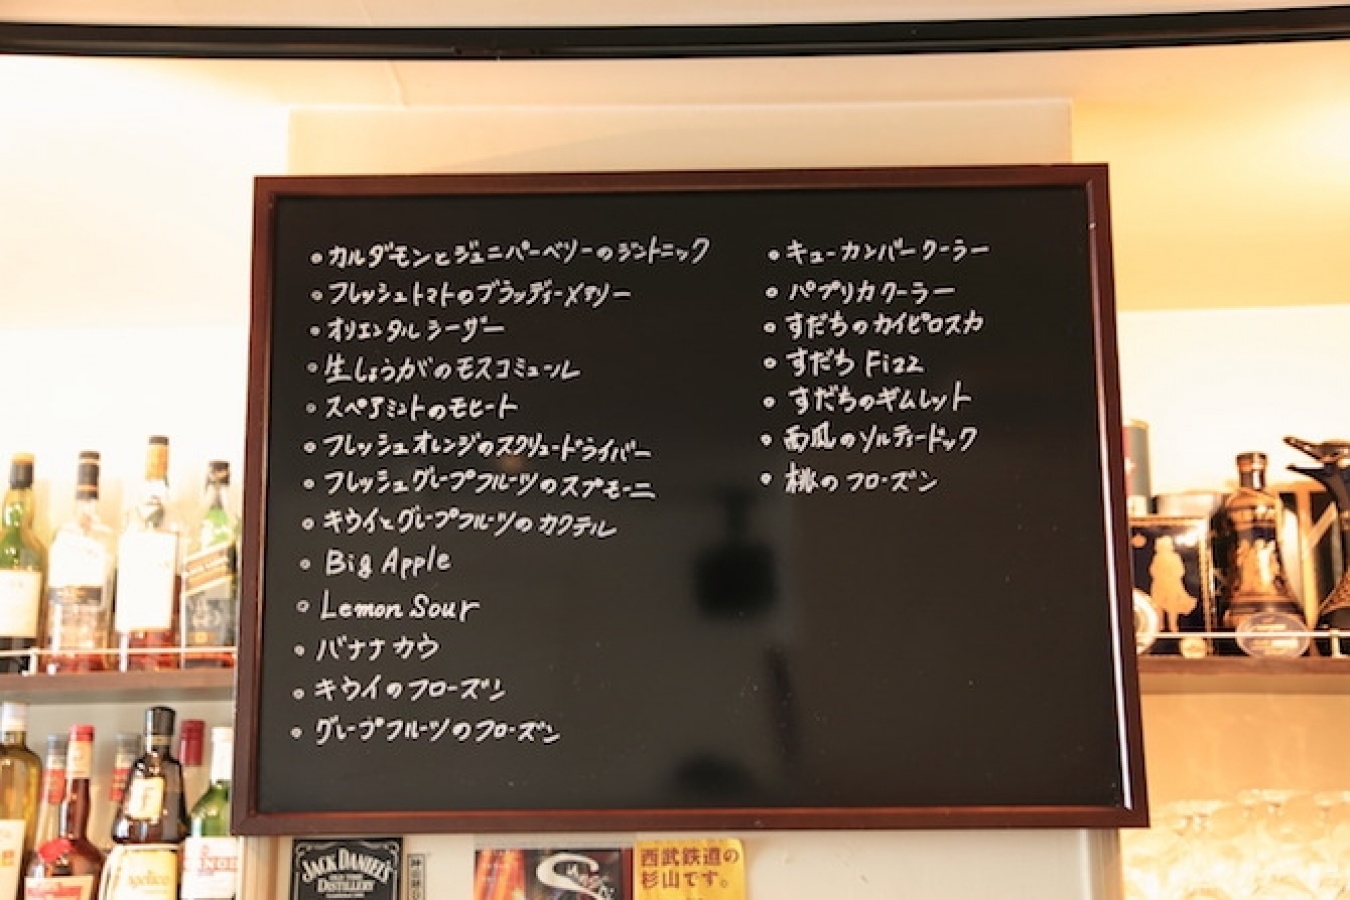 カルダモンとジュニパーベリーのジントニック
フレッシュトマトのブラッディーメアリー
オリエンタルシーザー
生しょうがのモスコミュール
スペアミントのモヒート
フレッシュオレンジのスクリュードライバー
フレッシュグレープフルーツのスプモーニ
キウイとグレープフルーツのカクテル
Big Apple
Lemon Sour
バナナカウ
キウイのフローズン
グレープフルーツのフローズン
キューカンバークーラー
パプリカクーラー
すだちのカイピロスカ
すだち Fizz
すだちのギムレット
西瓜のソルティードック
桃のフローズン
JACK DANIEL'S
OLD TIME
DISTILLERY
西武鉄道の
杉山です。